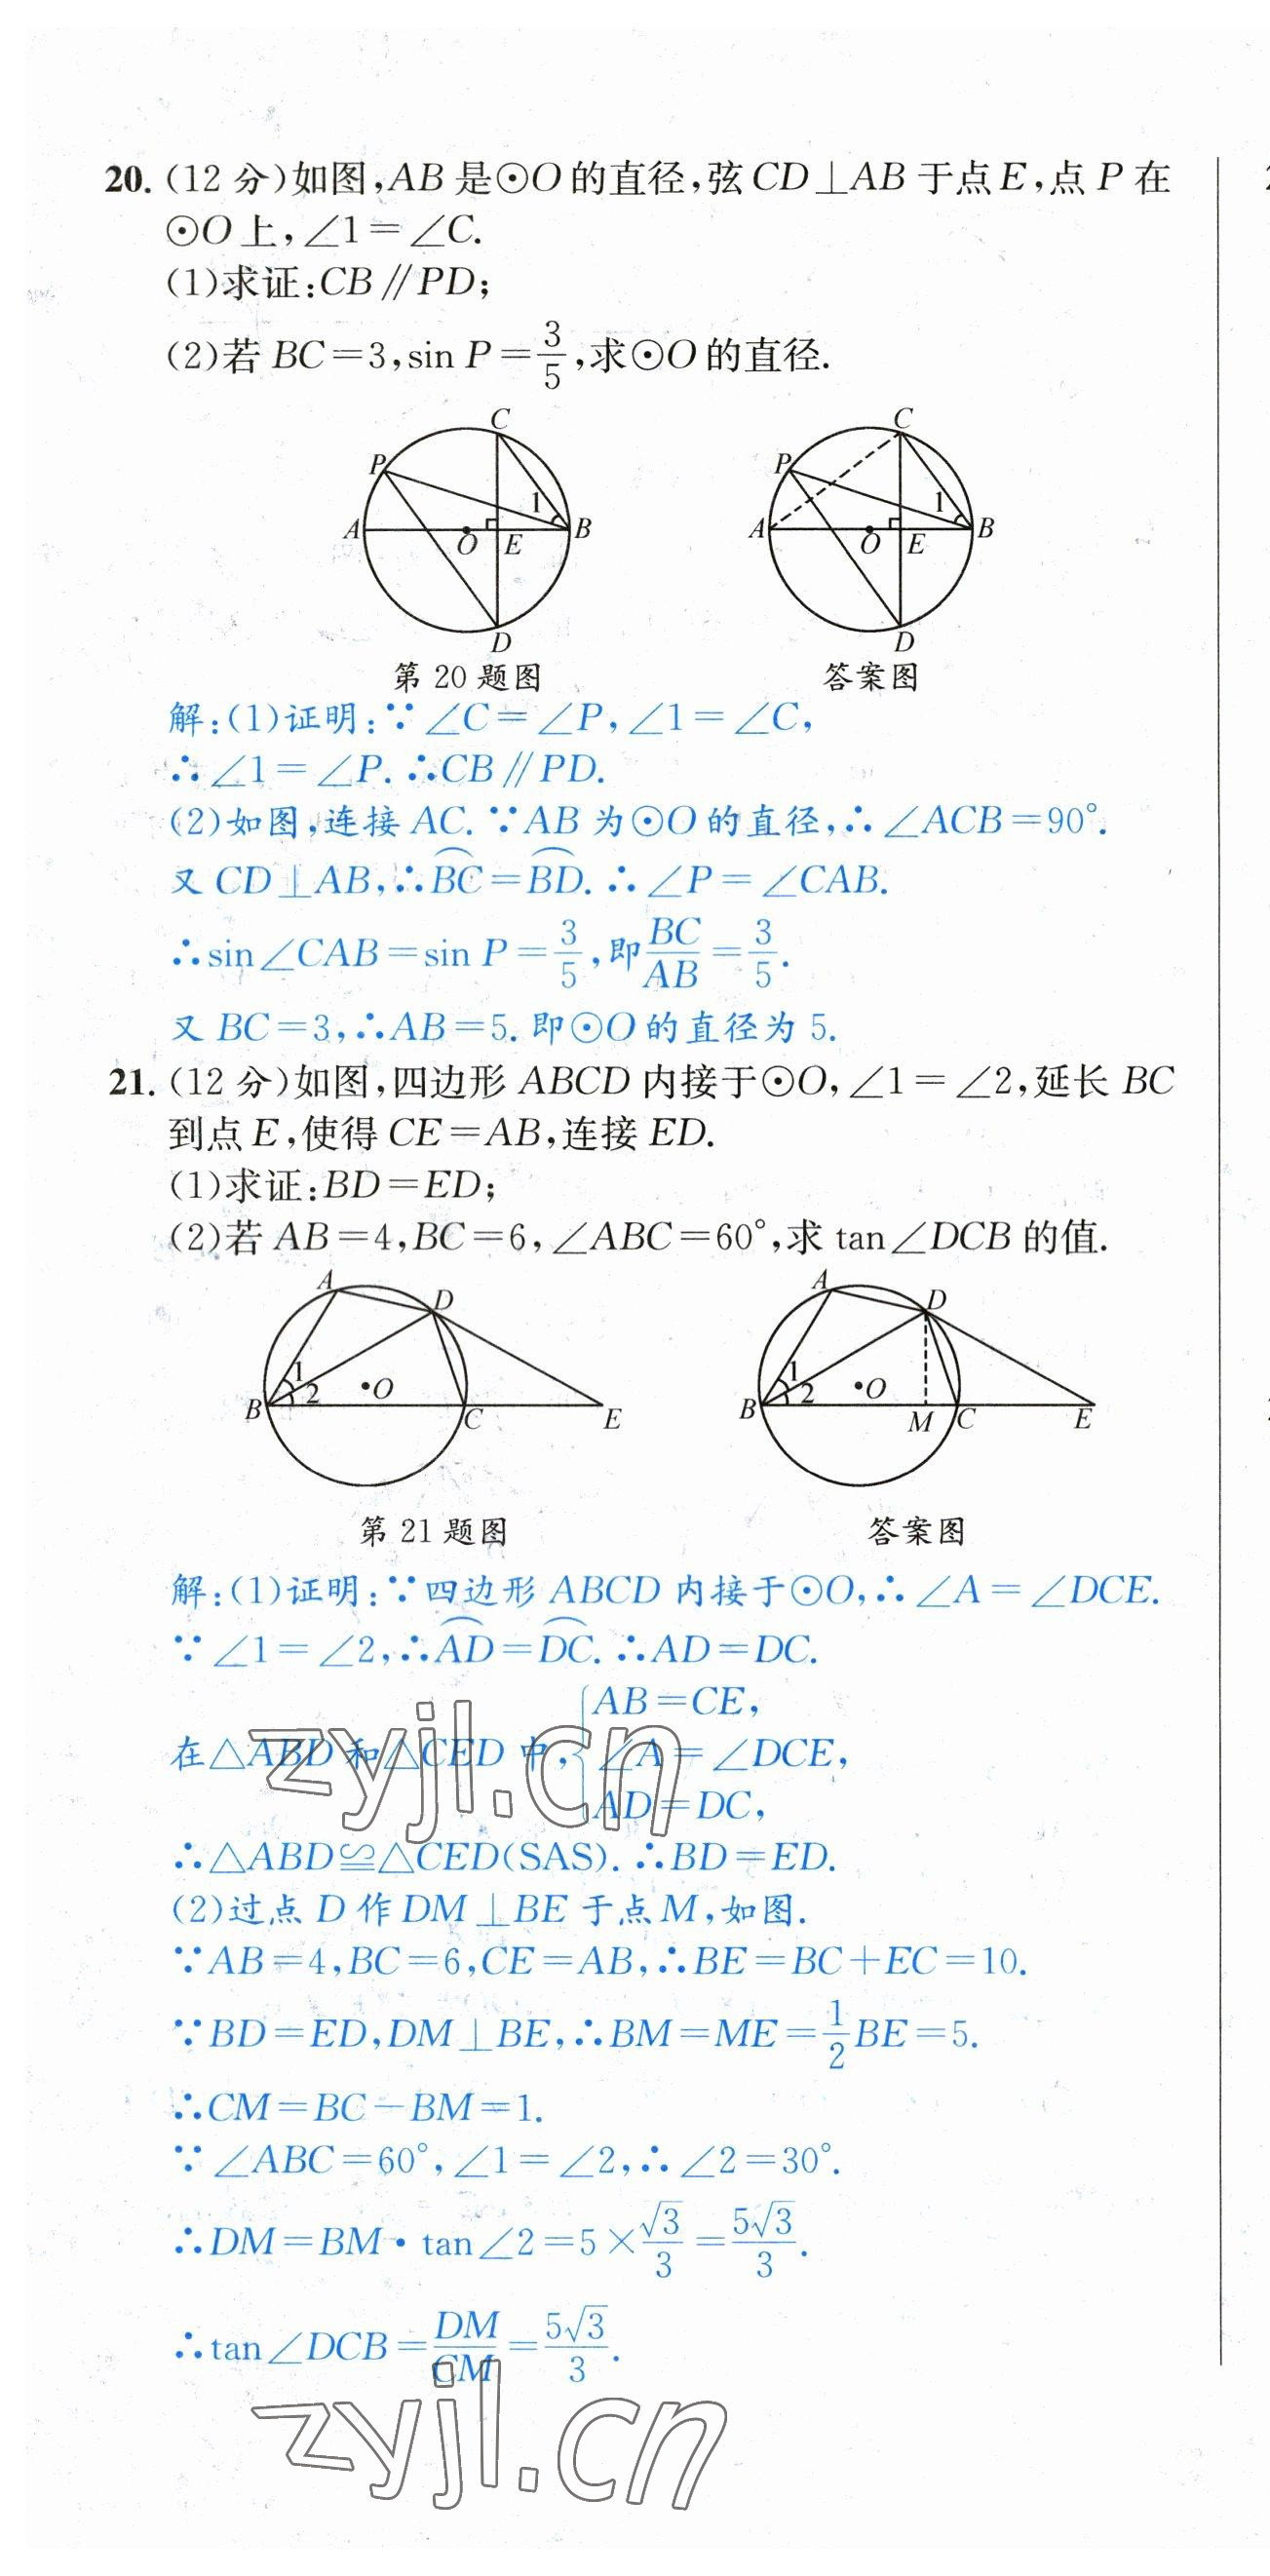 20. (12 分)如图,AB 是⊙O 的直径,弦 CD⊥AB 于点 E,点 P 在
⊙O 上,∠1=∠C.
(1)求证:CB∥PD;
(2)若 BC=3,sin P=3/5,求⊙O 的直径.
C
P
1
A
O
E
B
D
第 20 题图
C
P
1
A
O
E
B
D
答案图
解:(1)证明:∵∠C=∠P,∠1=∠C,
∴∠1=∠P.∴CB∥PD.
(2)如图,连接 AC.∵AB 为⊙O 的直径,∴∠ACB=90°.
又 CD⊥AB,∴⌒BC=⌒BD.∴∠P=∠CAB.
∴sin∠CAB=sin P=3/5,即BC/AB=3/5.
又 BC=3,∴AB=5.即⊙O 的直径为 5.
21. (12 分)如图,四边形 ABCD 内接于⊙O,∠1=∠2,延长 BC
到点 E,使得 CE=AB,连接 ED.
(1)求证:BD=ED;
(2)若 AB=4,BC=6,∠ABC=60°,求 tan∠DCB 的值.
A
D
1
2
O
B
C
E
第 21 题图
A
D
1
2
O
B
M
C
E
答案图
解:(1)证明:∵四边形 ABCD 内接于⊙O,∴∠A=∠DCE.
∵∠1=∠2,∴⌒AD=⌒DC.∴AD=DC.
AB=CE,
在△ABD 和△CED 中,∠A=∠DCE,
AD=DC,
∴△ABD≌△CED(SAS).∴BD=ED.
(2)过点 D 作 DM⊥BE 于点 M,如图.
∵AB=4,BC=6,CE=AB,∴BE=BC+EC=10.
∵BD=ED,DM⊥BE,∴BM=ME=1/2BE=5.
∴CM=BC−BM=1.
∵∠ABC=60°,∠1=∠2,∴∠2=30°.
∴DM=BM·tan∠2=5×√3/3=5√3/3.
∴tan∠DCB=DM/CM=5√3/3.
zyjl.cn
zyjl.cn